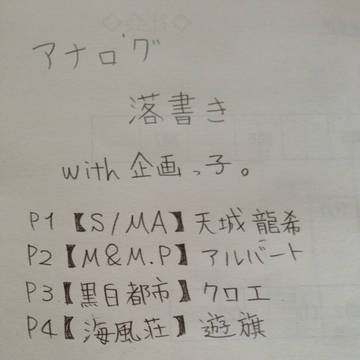 アナログ
落書き
with 企画っ子。
P1【S/MA】天城龍希
P2【M&M.P】アルバート
P3【黒白都市】クロエ
P4【海風荘】遊旗